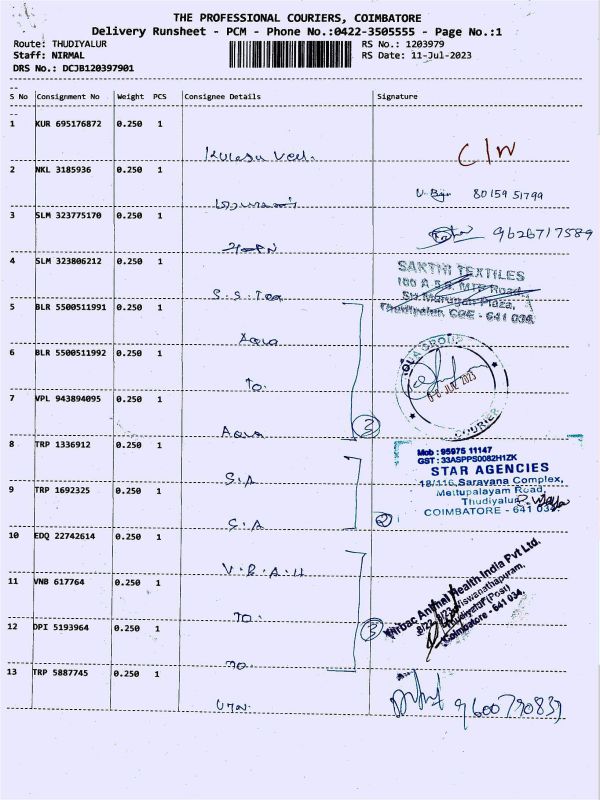 THE PROFESSIONAL COURIERS, COIMBATORE
Delivery Runsheet - PCM - Phone No.:0422-3505555 - Page No.:1
Route: THUDIYALUR RS No.: 1203979
Staff: NIRMAL RS Date: 11-Jul-2023
DRS No.: DCJB120397901
S No Consignment No Weight PCS Consignee Details Signature
1 KUR 695176872 0.250 1
C/W
2 NKL 3185936 0.250 1 80159 51799
3 SLM 323775170 0.250 1 9626717589
4 SLM 323806212 0.250 1 SAKTHI TEXTILES
S.S. Tea 100 A S.S. MTP Road,
Sri Murugan Plaza,
Thudiyalur, CBE - 641 034.
5 BLR 5500511991 0.250 1
Aqua
6 BLR 5500511992 0.250 1
To.
7 VPL 943894095 0.250 1
Aqua 3
AQUA GROUP
JUL 2023
COURIER
8 TRP 1336912 0.250 1
S.A
Mob : 95975 11147
GST : 33ASPPS0082H1ZK
STAR AGENCIES
18/116, Saravana Complex,
Mettupalayam Road,
Thudiyalur,
COIMBATORE - 641 034.
9 TRP 1692325 0.250 1
S.A 2
10 EDQ 22742614 0.250 1
V.B.A.H
11 VNB 617764 0.250 1
To.
Virbac Animal Health India Pvt Ltd.
Viswanathapuram,
Thudiyalur (Post)
Coimbatore - 641 034.
12 DPI 5193964 0.250 1
To. 3
13 TRP 5887745 0.250 1